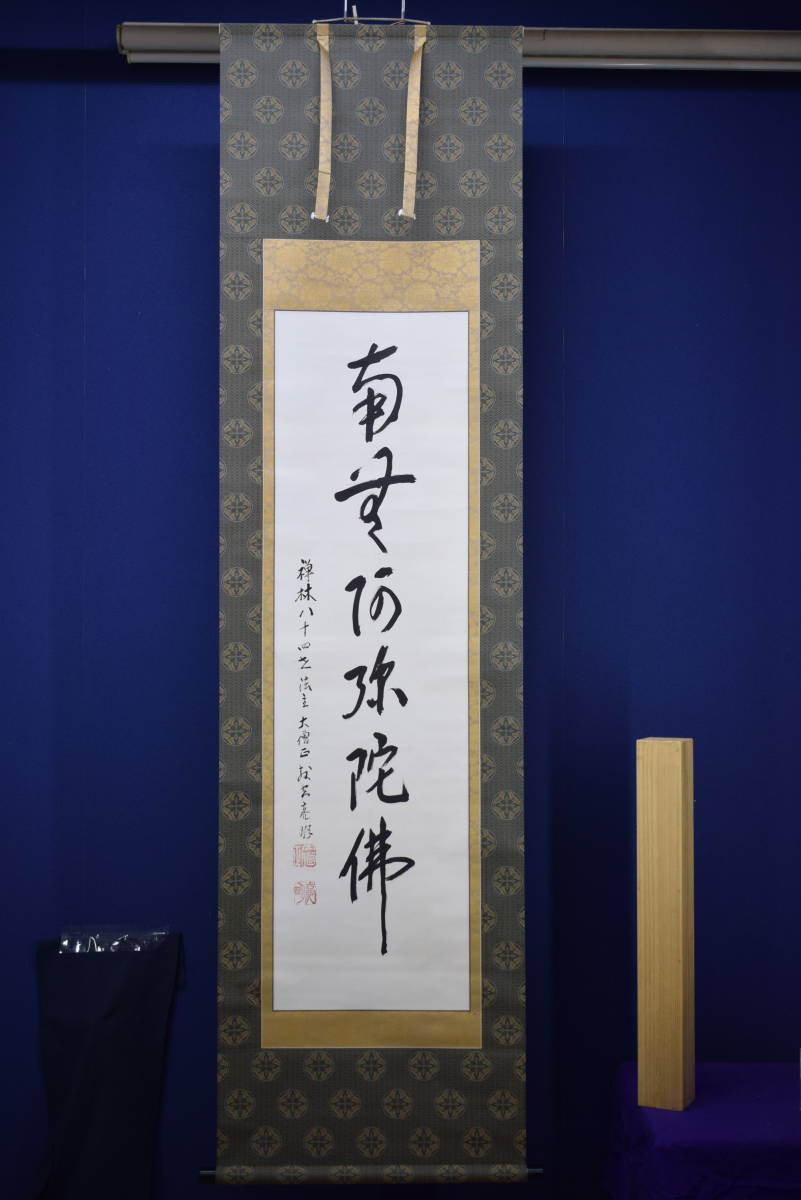 南無阿弥陀佛
禅林八十四世法主 大僧正